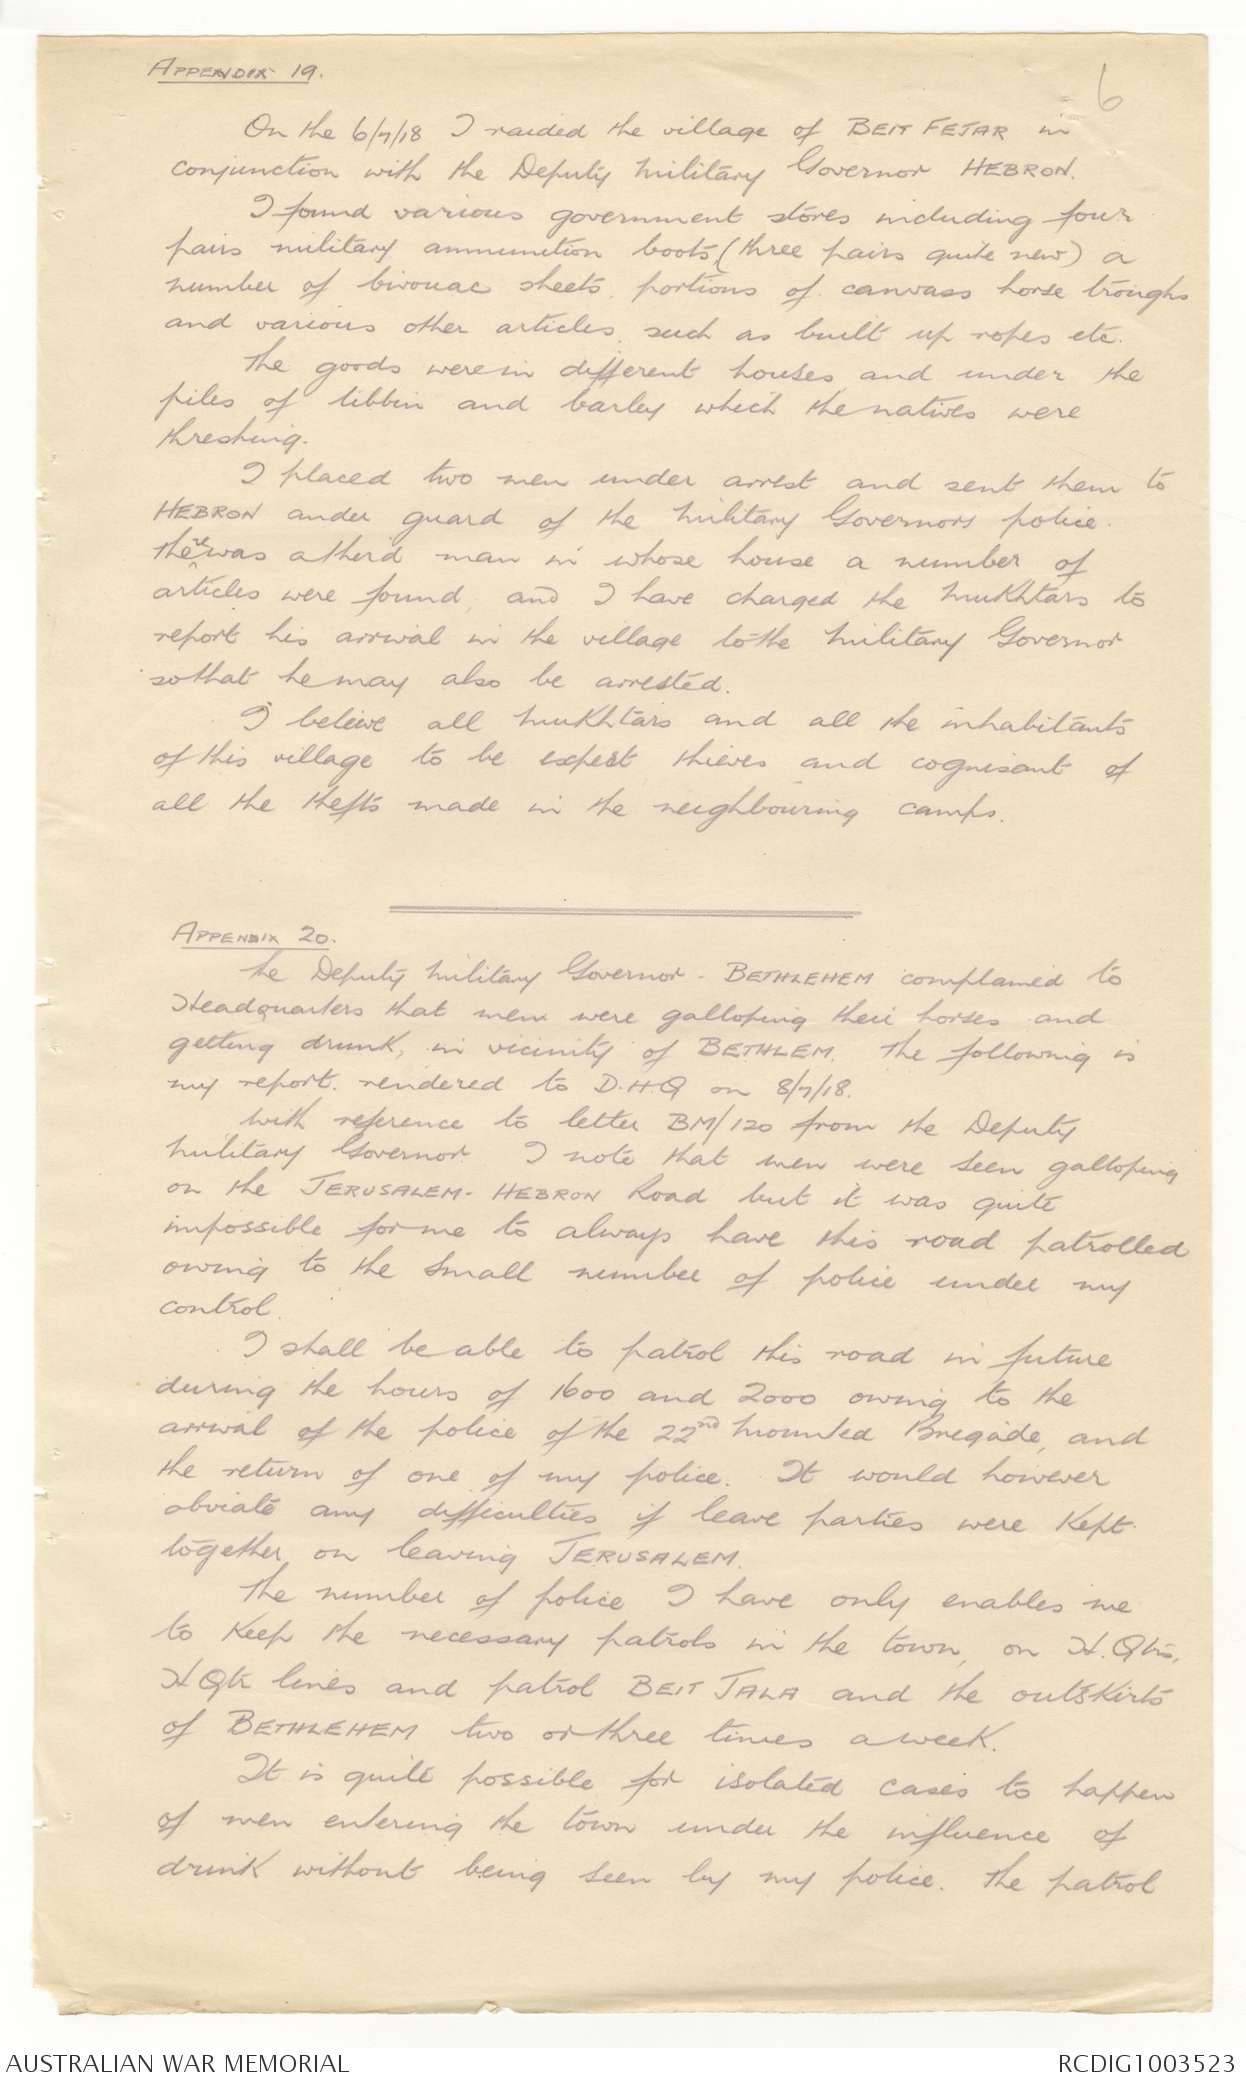 APPENDIX 19.
6
On the 6/7/18 I raided the village of BEIT FEJAR in
conjunction with the Deputy Military Governor HEBRON.
I found various government stores including four
pairs military ammunition boots, (three pairs quite new) a
number of bivouac sheets, portions of canvass horse troughs
and various other articles, such as built up ropes etc.
The goods were in different houses and under the
piles of tibbin and barley which the natives were
threshing.
I placed two men under arrest and sent them to
HEBRON under guard of the Military Governors police.
There was a therd man in whose house a number of
articles were found, and I have charged the Mukhtars to
report his arrival in the village to the Military Governor
so that he may also be arrested.
I believe all Mukhtars and all the inhabitants
of this village to be expert thieves and cognisant of
all the thefts made in the neighbouring camps.
APPENDIX 20.
The Deputy Military Governor - BETHLEHEM complained to
Headquarters that men were galloping their horses and
getting drunk, in vicinity of BETHLEM. The following is
my report rendered to D.H.Q on 8/7/18.
With reference to letter BM/120 from the Deputy
Military Governor I note that men were seen galloping
on the JERUSALEM - HEBRON Road but it was quite
impossible for me to always have this road patrolled
owing to the small number of police under my
control.
I shall be able to patrol this road in future
during the hours of 1600 and 2000 owing to the
arrival of the police of the 22nd Mounted Brigade, and
the return of one of my police. It would however
obviate any difficulties if leave parties were kept
together on leaving JERUSALEM.
The number of police I have only enables me
to keep the necessary patrols in the town, on H.Qtrs,
H Qtr lines and patrol BEIT JALA and the outskirts
of BETHLEHEM two or three times a week.
It is quite possible for isolated cases to happen
of men entering the town under the influence of
drink without being seen by my police. The patrol
AUSTRALIAN WAR MEMORIAL
RCDIG1003523